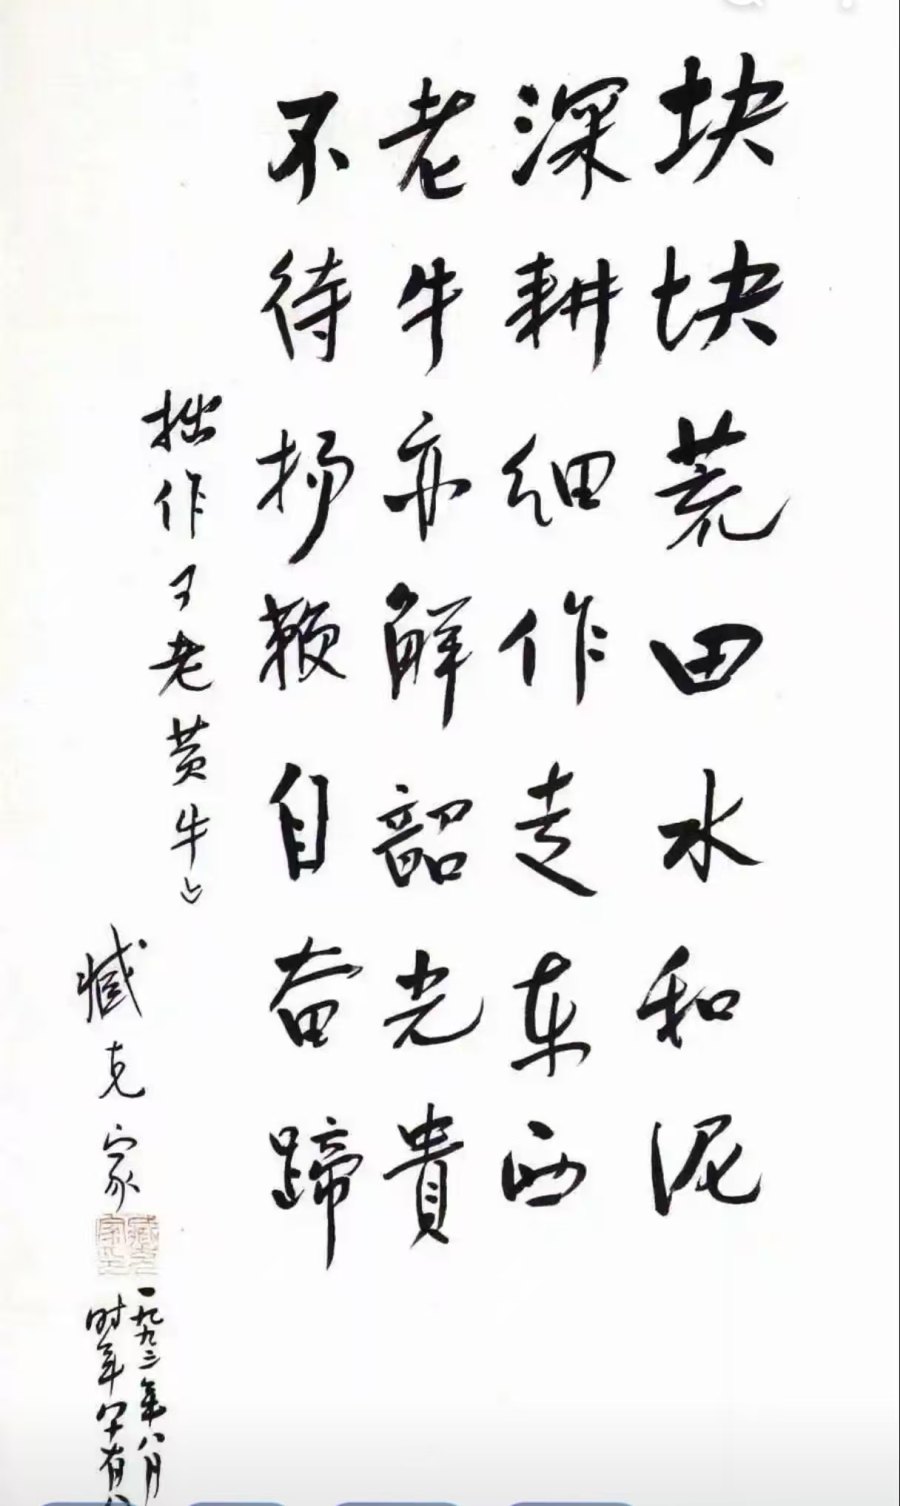 块块荒田水和泥
深耕细作走东西
老牛亦解韶光貴
不待扬鞭自奋蹄
拙作《老黄牛》
臧克家
一九九二年八月
时年八十有八